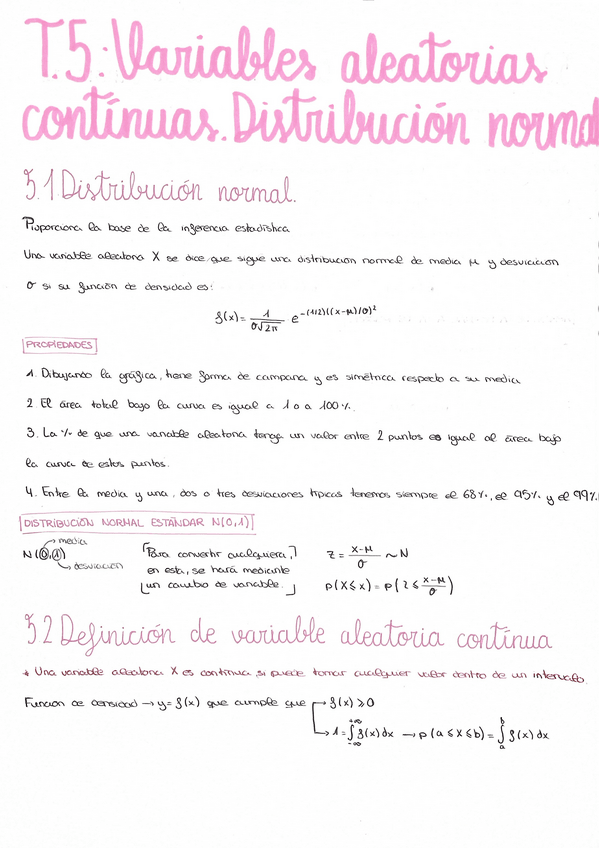 T.5: Variables aleatorias
contínuas. Distribución normal
5.1 Distribución normal.
Proporciona la base de la inferencia estadística
Una variable aleatoria X se dice que sigue una distribución normal de media μ y desviación
σ si su función de densidad es:
f(x) = 1/(σ√2π) e^-(1/2)((x-μ)/σ)²
PROPIEDADES
1. Dibujando la gráfica, tiene forma de campana y es simétrica respecto a su media
2. El área total bajo la curva es igual a 1 o a 100%.
3. La % de que una variable aleatoria tenga un valor entre 2 puntos es igual al área bajo
la curva de estos puntos.
4. Entre la media y una, dos o tres desviaciones típicas tenemos siempre el 68%, el 95% y el 99%.
DISTRIBUCIÓN NORMAL ESTÁNDAR N(0,1)
N(0,1) → media → desviación
Para convertir cualquiera,
en esta, se hará mediante
un cambio de variable.
z = (x-μ)/σ ~ N
p(X≤x) = p(z ≤ (x-μ)/σ)
5.2 Definición de variable aleatoria contínua
* Una variable aleatoria X es contínua si puede tomar cualquier valor dentro de un intervalo.
Función de densidad → y = f(x) que cumple que → f(x) ≥ 0
→ 1 = ∫_{-∞}^{+∞} f(x) dx → p(a ≤ x ≤ b) = ∫_a^b f(x) dx